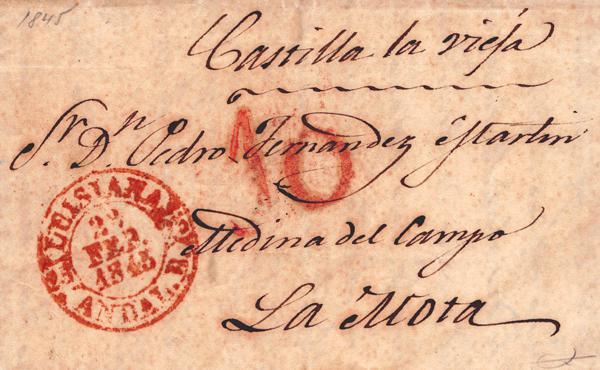 1845
Castilla la vieja
10
Sr. Dn. Pedro Fernandez Martin
Medina del Campo
La Mota
ENE.
1845
ANDAL. B